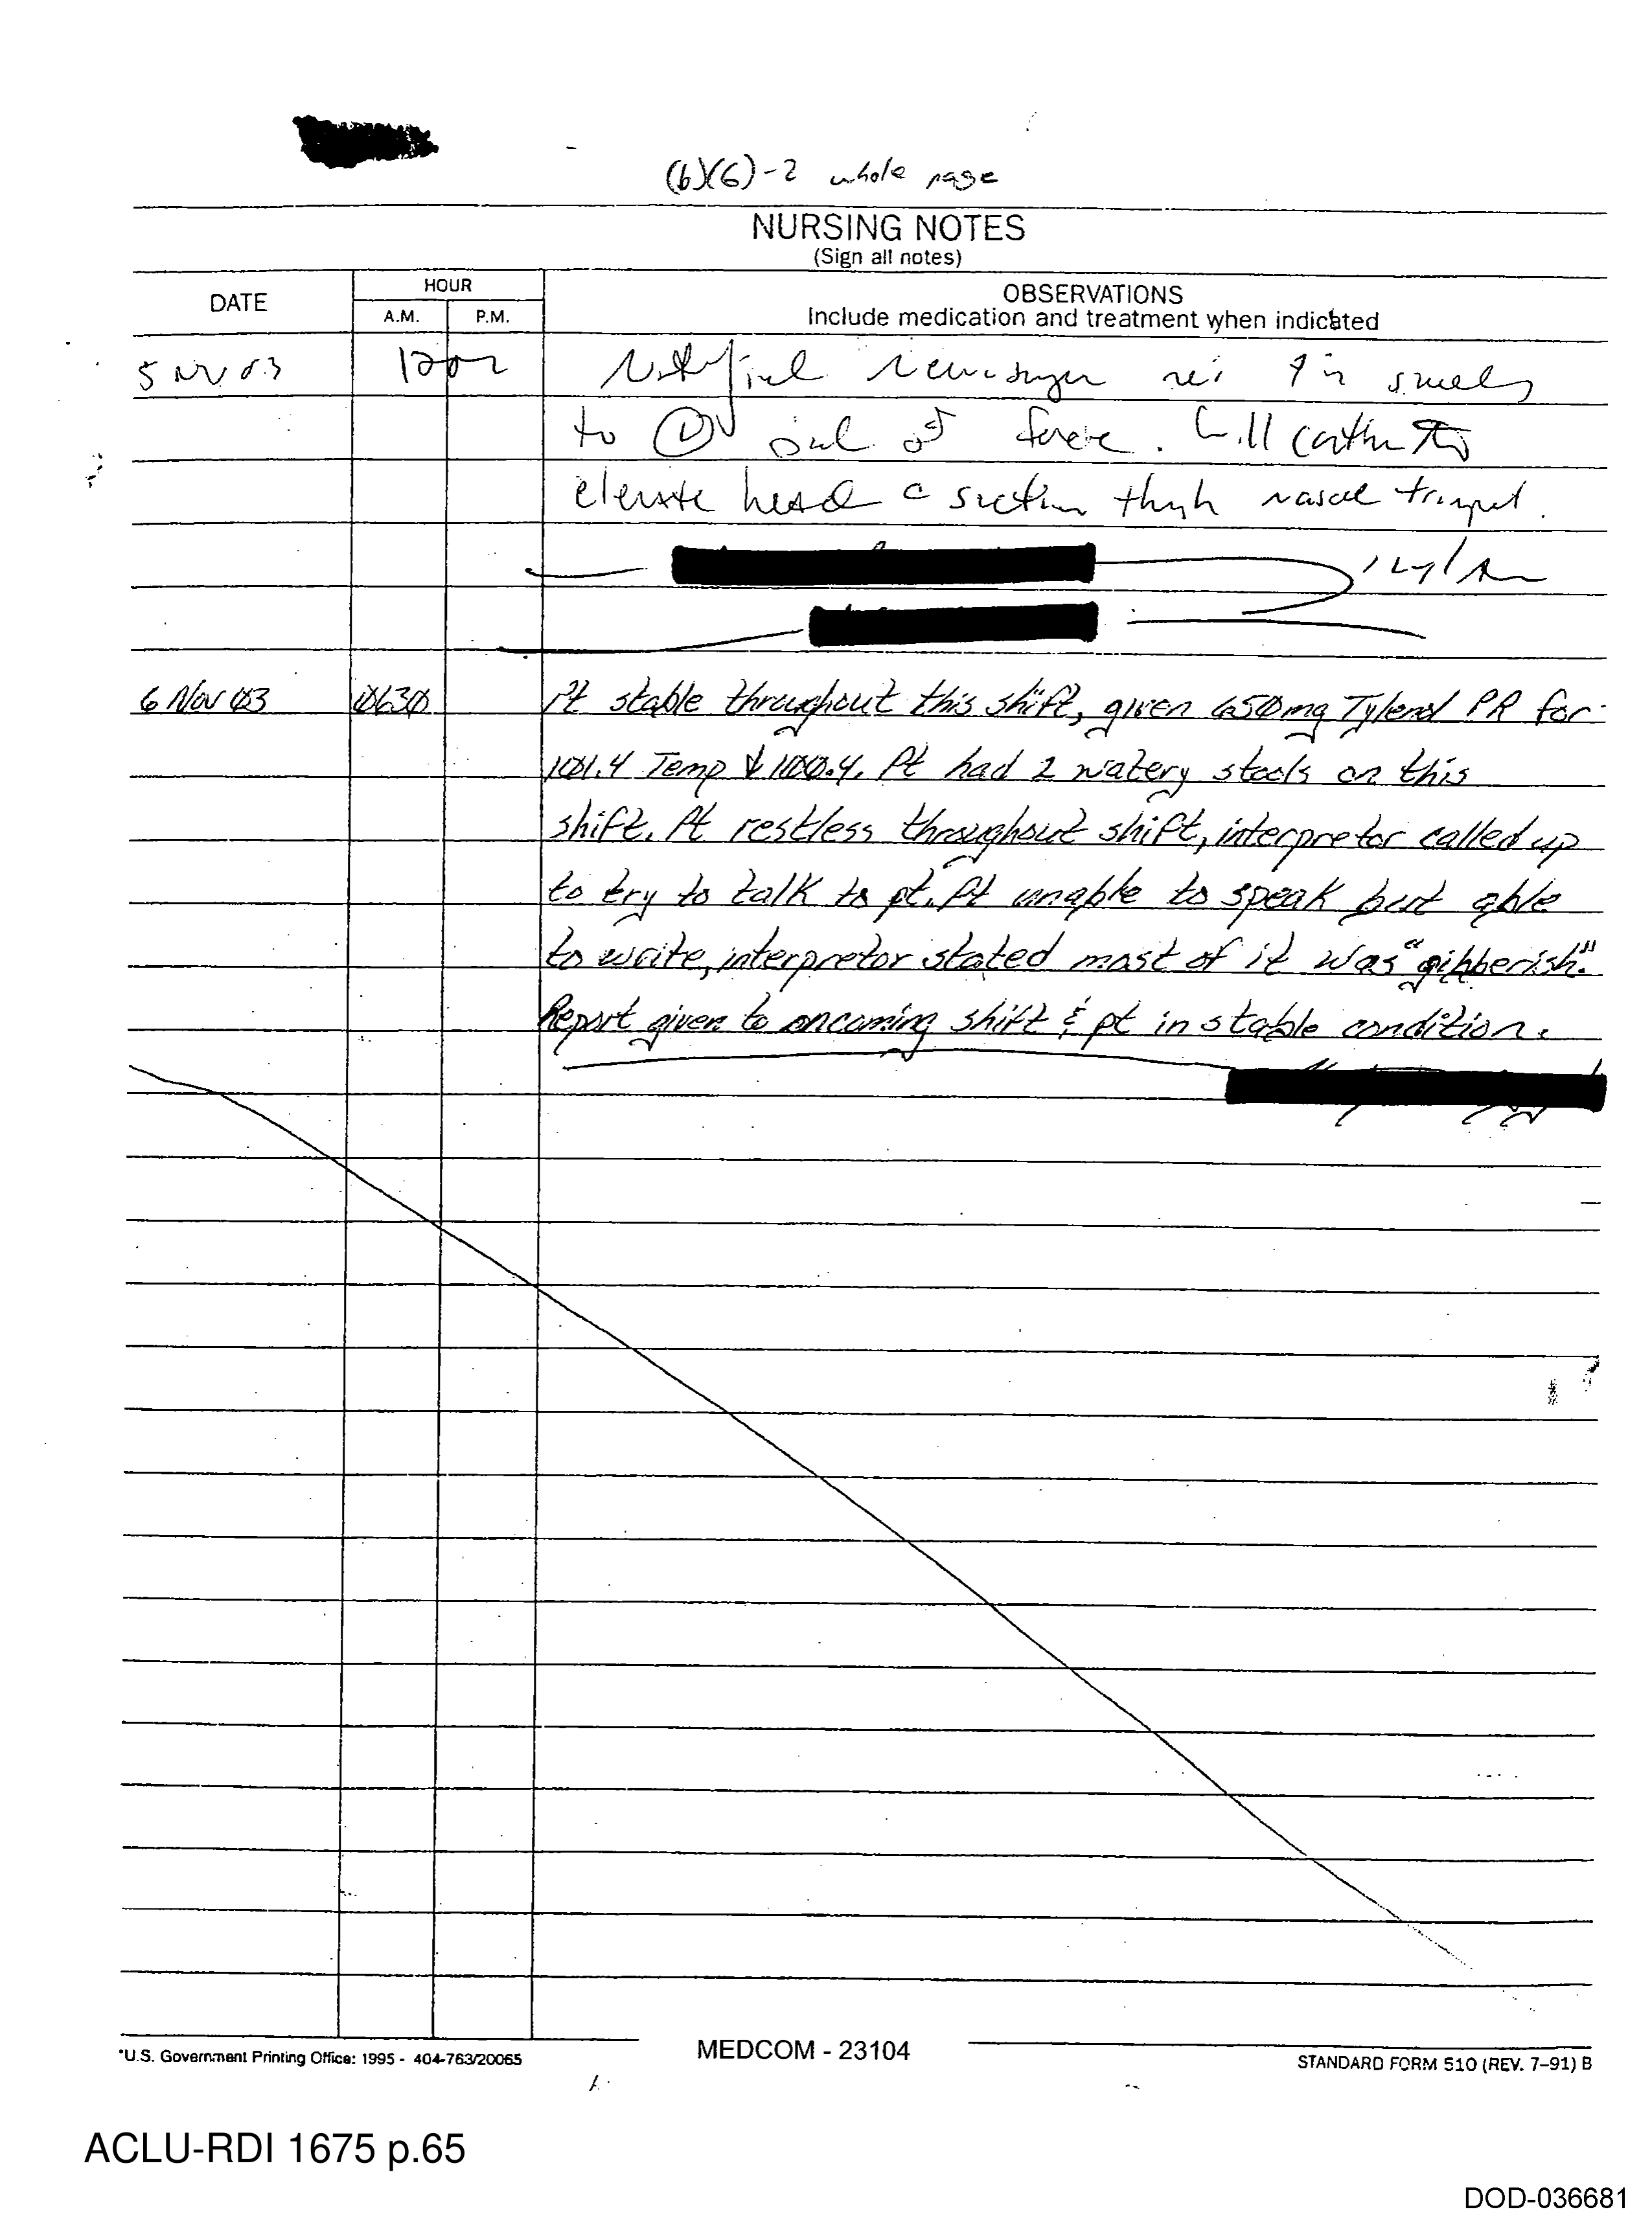 (b)(6)-2 whole page
NURSING NOTES
(Sign all notes)
DATE
HOUR
A.M.
P.M.
OBSERVATIONS
Include medication and treatment when indicated
5 Nov 03
Notified
to side of face. Will continue to
elevate head c suction nasal trumpet.
6 Nov 03 0630 Pt stable throughout this shift, given 650mg Tylenol PR for
101.4 Temp ↓ 100.4. Pt had 2 watery stools on this
shift. Pt restless throughout shift, interpretor called up
to try to talk to pt. Pt unable to speak but able
to write, interpretor stated most of it was "gibberish."
Report given to oncoming shift & pt in stable condition.
*U.S. Government Printing Office: 1995 - 404-763/20065
MEDCOM - 23104
STANDARD FORM 510 (REV. 7-91) B
ACLU-RDI 1675 p.65
DOD-036681